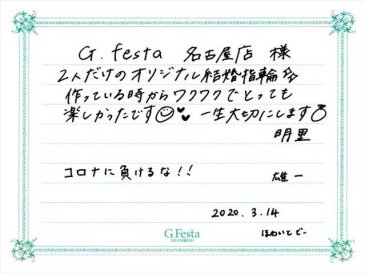 G. festa 名古屋店 様
2人だけのオリジナル結婚指輪
作っている時からワクワクでとっても
楽しかったです 一生大切にします
明里
コロナに負けるな!!
雄一
2020. 3.14
G.Festa
DIAMOND
ほわいとでー